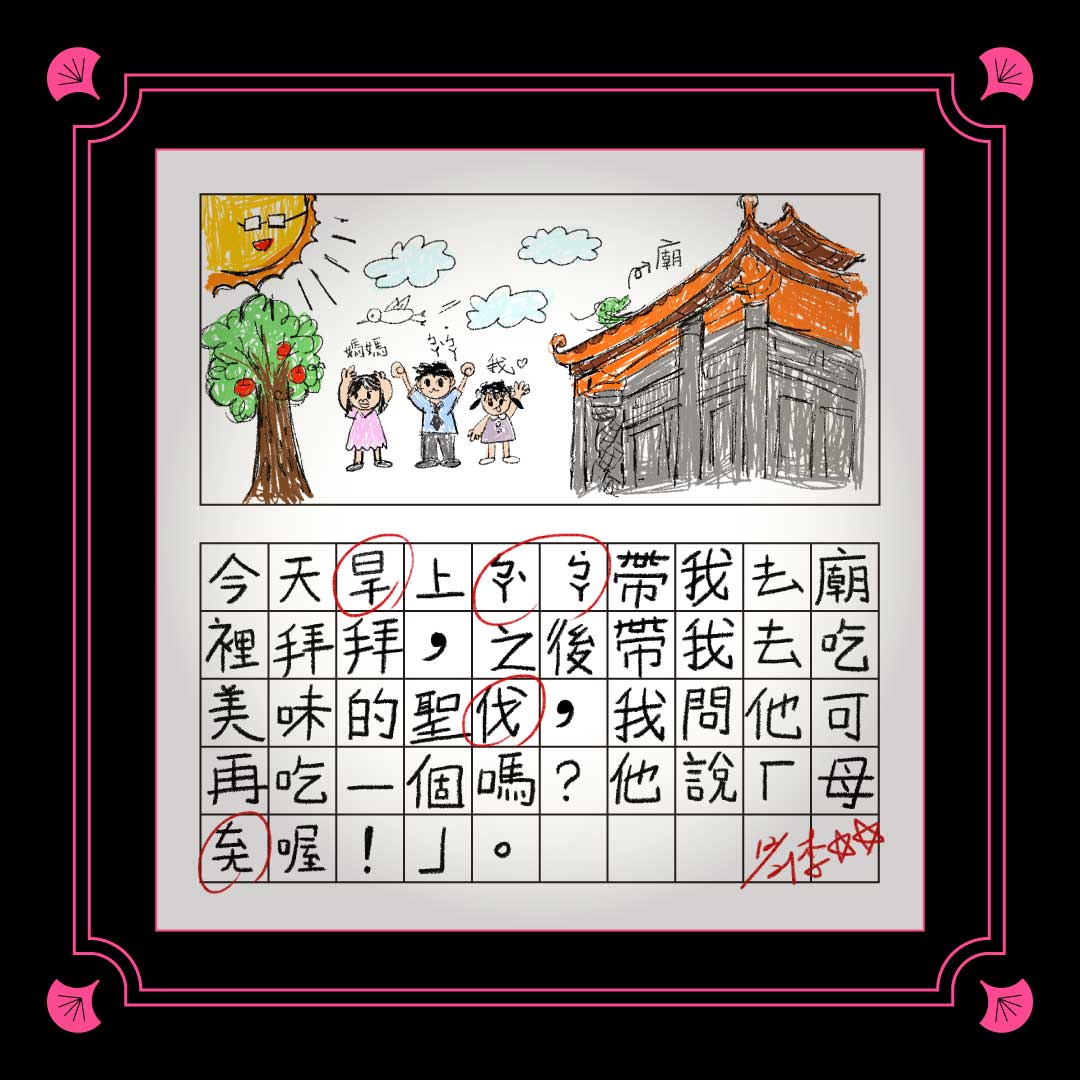 廟
媽媽
ㄅㄚˋ˙ㄅㄚ
我♡
今天旱上ㄅㄚˋ˙ㄅㄚ帶我去廟
裡拜拜，之後帶我去吃
美味的聖伐，我問他可
再吃一個嗎？他說「母
喔！」。